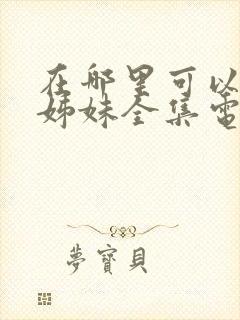 在那里可以
姊妹全集電
夢寶貝